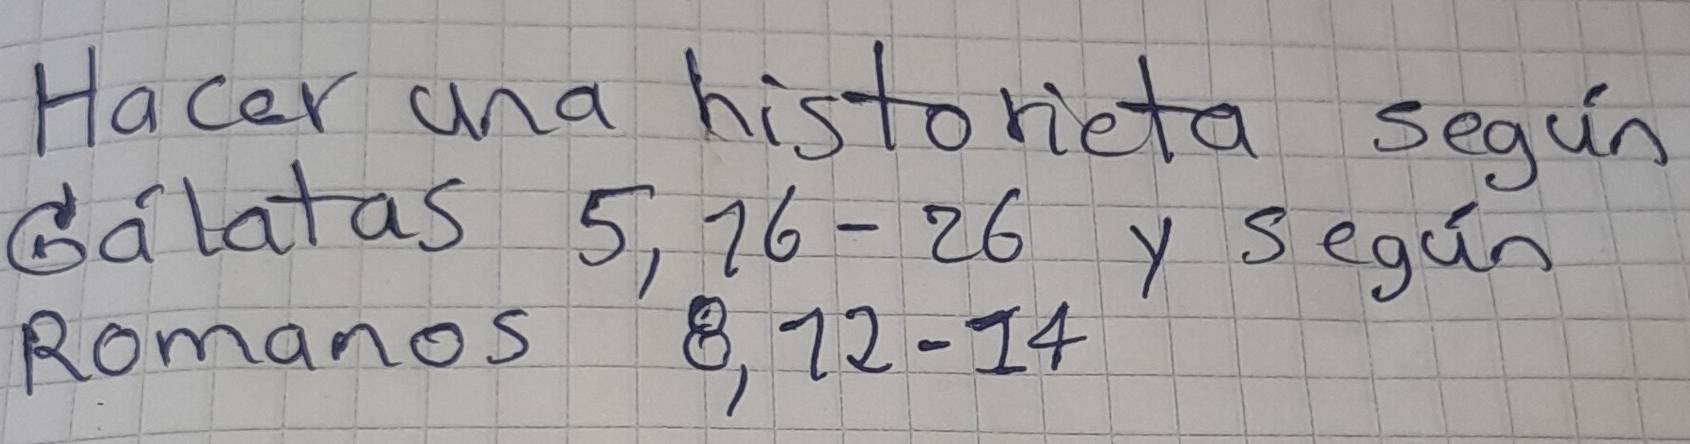 Hacer una historieta según
Gálatas 5, 16-26 y según
Romanos 8, 12-14